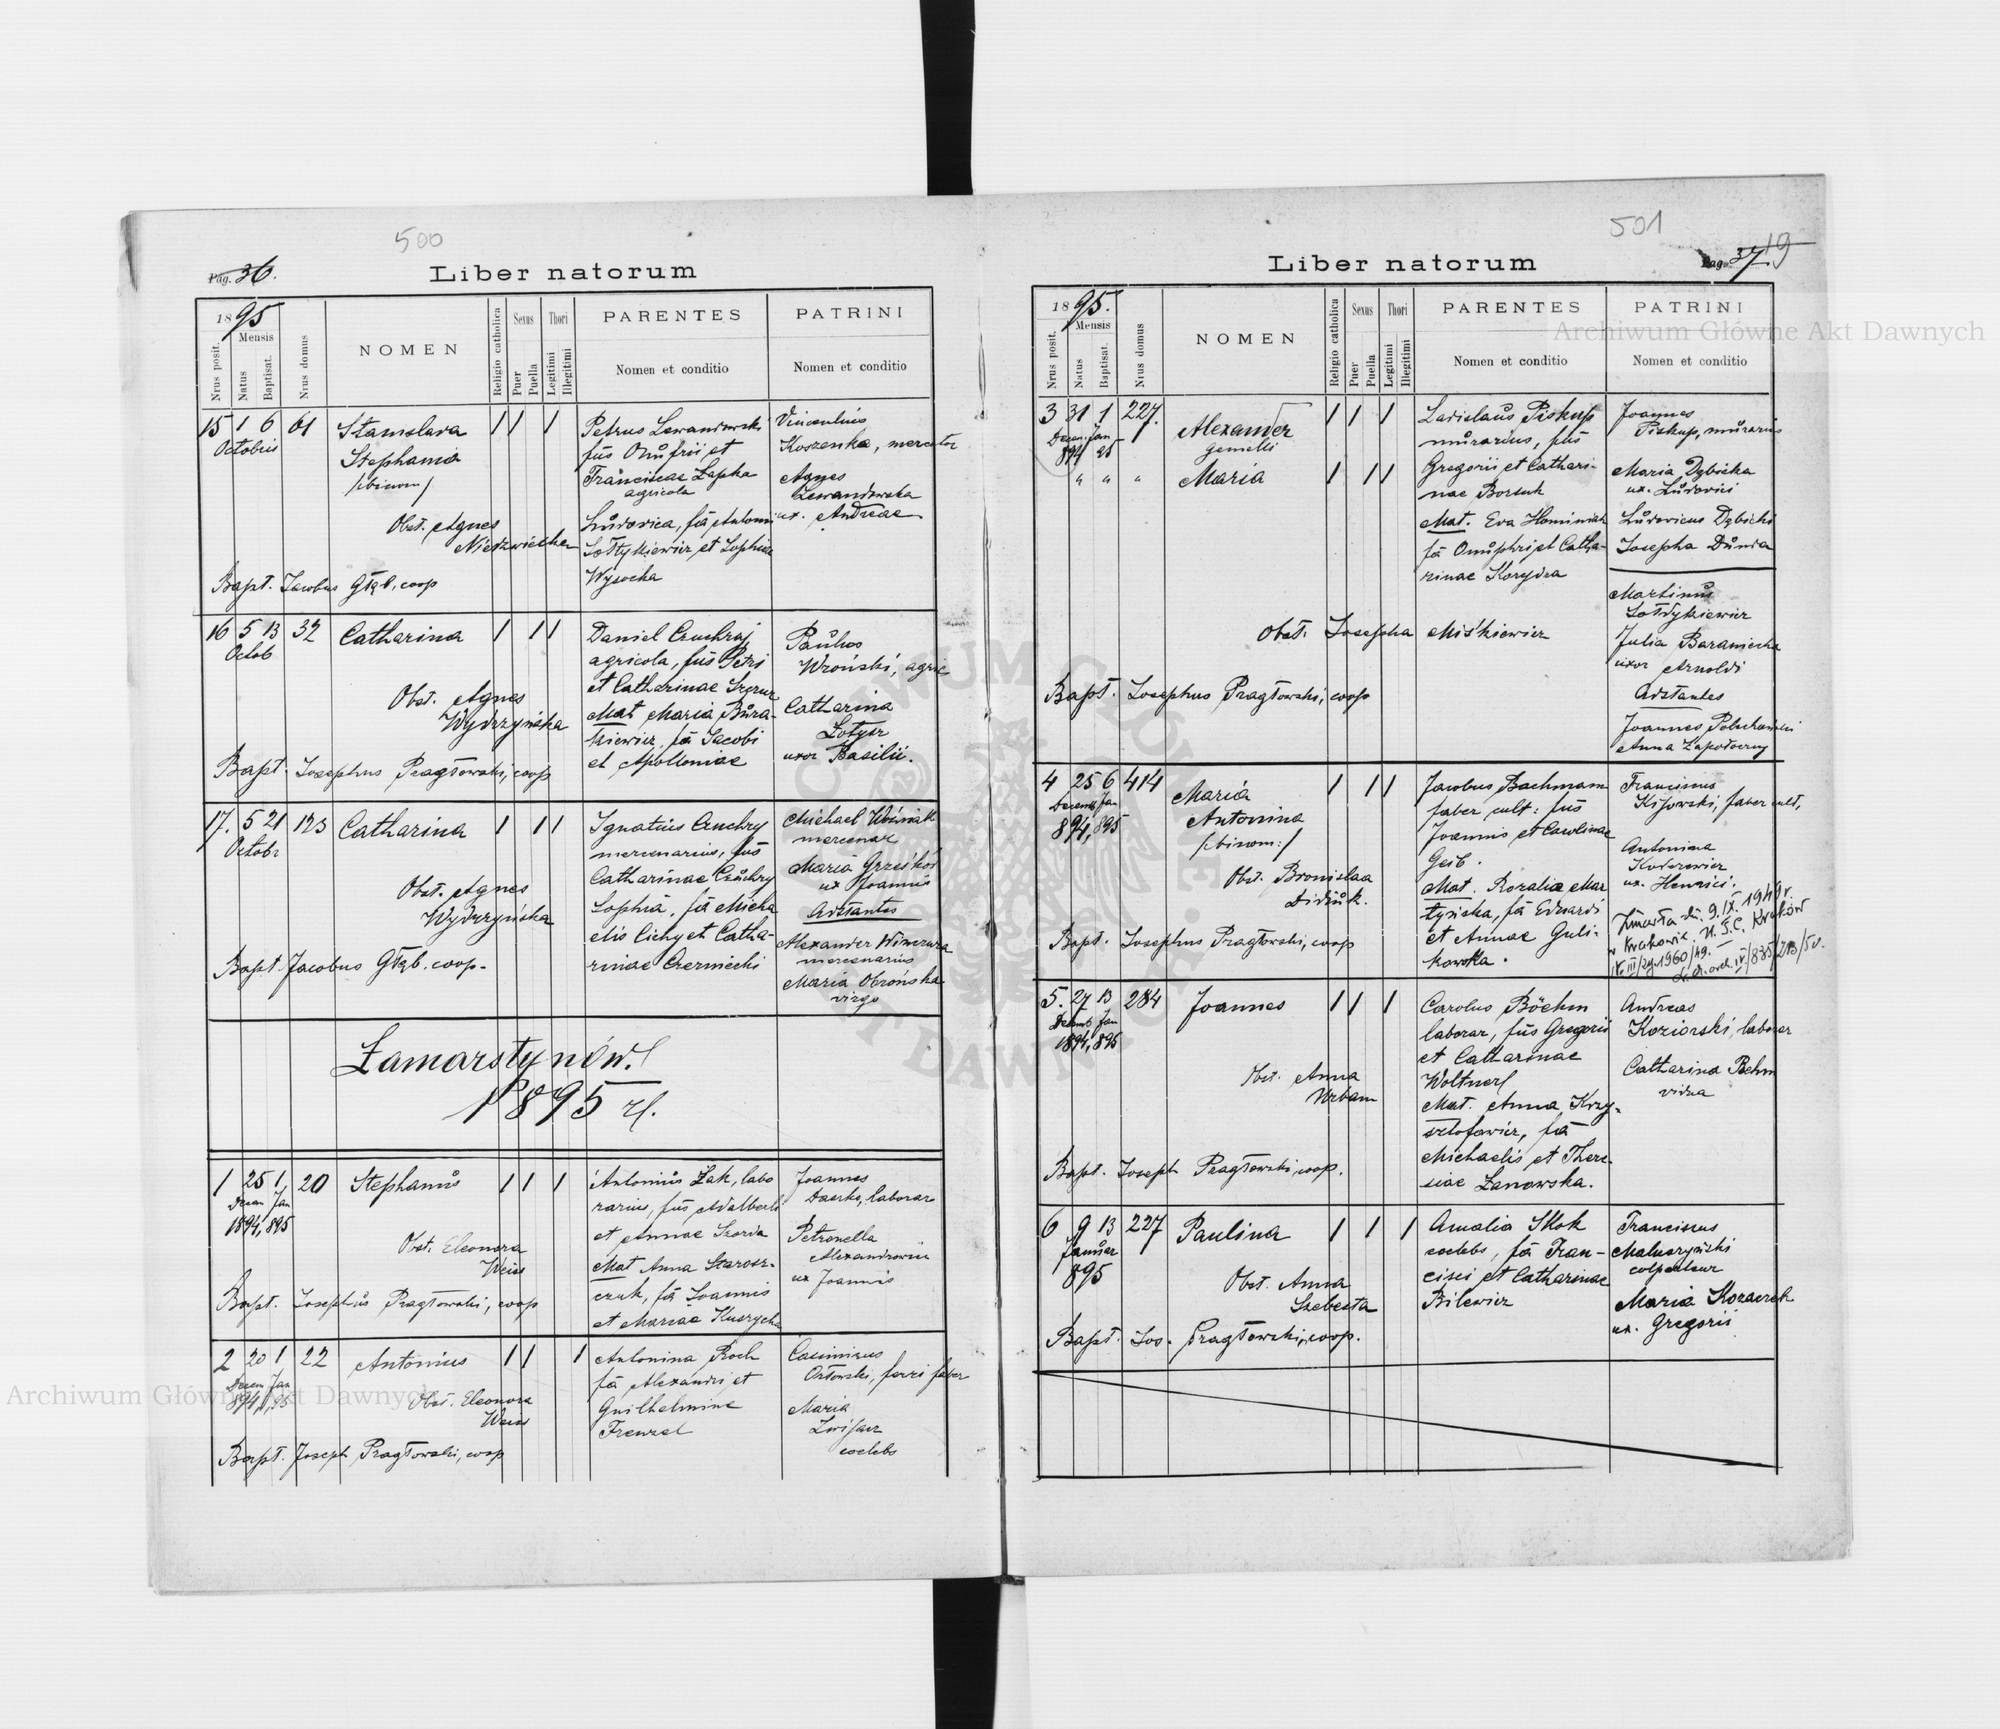 500
Pag. 36.
Liber natorum
1895
Mensis
Nrus posit.
Natus
Baptisat.
Nrus domus
NOMEN
Religio catholica
Sexus
Puer
Puella
Thori
Legitimi
Illegitimi
PARENTES
Nomen et conditio
PATRINI
Nomen et conditio
15 1 6 61
Octobris
Stanislava
Stephania
/:binom/
Obst. Agnes
Bapt. Jacobus Głąb, coop
Petrus Lewandowski
fŭs Onŭfrii et
Franciscae Łapka
agricola
Lŭdovica, fa Antonii
Sołtykiewicz et Sophiae
Wysocka
Vincentius
Koszenka, mercator
Agnes
Lewandowska
ux. Andreae
16 5 13 32
Octob
Catharina
Obst. Agnes
Wydrzyńska
Bapt. Josephus Pragłowski, coop
Daniel Czuchraj
agricola, fŭs Petri
et Catharinae
Mat Maria Bŭra-
kiewicz, fa Jacobi
et Apolloniae
Paŭlus
Wroński, agric
Catharina
Łotysz
uxor Basilii.
17. 5 21 123
Octobr
Catharina
Obst. Agnes
Wydrzyńska
Bapt. Jacobus Głąb. coop.
Ignatius Czuchry
mercenarius, fŭs
Catharinae Czŭchry
Sophia, fa Micha
elis Cichy et Catha-
rinae Czerniecki
Michael Woźniak
mercenar
Maria Grześków
ux Joannis
Adstantes
Alexander
mercenarius
Maria Obrońska
virgo
Zamarstynów.
1895 r.
1 25 1 20
Decem Jan
1894, 895
Stephanŭs
Obst. Eleonora
Weiss
Bapt. Josephŭs Pragłowski, coop
Antoniŭs Żak, labo
rarius, fŭs Adalberti
et Annae Szorda
Mat Anna Starosz-
czuk, fa Joannis
et Mariae
Joannes
laborar
Petronella
Alexandrowicz
ux Joannis
2 20 1 22
Decem Jan
894, 95
Antonius
Obst. Eleonora
Weiss
Bapt. Joseph Pragłowski, coop
Antonina Roch
fa Alexandri et
Guilhelmine
Frenzel
Casimirus
Orłowski, ferri faber
Maria
coelebs
501
Liber natorum
Pag. 37
19
1895.
Mensis
Nrus posit.
Natus
Baptisat.
Nrus domus
NOMEN
Religio catholica
Sexus
Puer
Puella
Thori
Legitimi
Illegitimi
PARENTES
Nomen et conditio
PATRINI
Nomen et conditio
3 31 1 227.
Decem Jan
894 95
Alexander
gemelli
" " " Maria
Obst. Josepha Miśkiewicz
Bapt. Josephus Pragłowski, coop
Ladislaŭs Piskup
mŭrarius, fŭs
Gregorii et Cathari-
nae Borsuk
Mat. Eva Hominiak
fa Onŭphri et Catha-
rinae Korydra
Joannes
Piskup, mŭrarius
Maria Dybicka
ux. Lŭdovici
Lŭdovicus Dybicki
Josepha Dŭnia
Martinus
Sołdykiewicz
Julia Baraniecka
uxor Arnoldi
Adstantes
Joannes
Anna
4 25 6 414
Decemb Jan
894, 895
Maria
Antonina
/:binom:/
Obst. Bronislaa
Bapt. Josephus Pragłowski, coop
Jacobus Bachmann
faber cult: fŭs
Joannis et Carolinae
Geib.
Mat. Rozalia Mar
tyńska, fa Eduardi
et Annae Guli-
kowska.
Franciscus
Kijowski, faber cult,
Antonina
ux. Henrici.
Zmarła dn. 9.IX.1949 r.
w Krakowie. U.S.C. Kraków
5. 27 13 284
Decemb Jan
1894, 895
Joannes
Obst. Anna
Urban
Bapt. Joseph Pragłowski, coop.
Carolus Böehm
laborar, fŭs Gregorii
et Catharinae
Woltnerl
Mat. Anna Krzy-
sztofowicz, fa
Michaelis et There-
siae Zanowska.
Andreas
Koziorski, laborar
Catharina Behm
vidua
6 9 13 227
Janŭar
895
Paulina
Obst. Anna
Szebesta
Bapt. Jos. Pragłowski, coop.
Amalia Skok
coelebs, fa Fran-
cisci et Catharinae
Bilewicz
Franciscus
Maluszyński
Maria Kozaczek
ux. Gregorii
Archiwum Główne Akt Dawnych
Archiwum Główne Akt Dawnych
ARCHIWUM GŁÓWNE AKT DAWNYCH